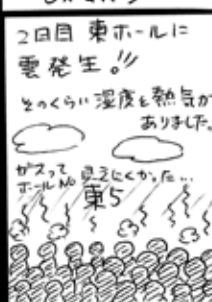 2日目 東ホールに
雲発生!!
そのくらい湿度と熱気が
ありました。
ガスって
ホールNo 見えにくかった…
東5